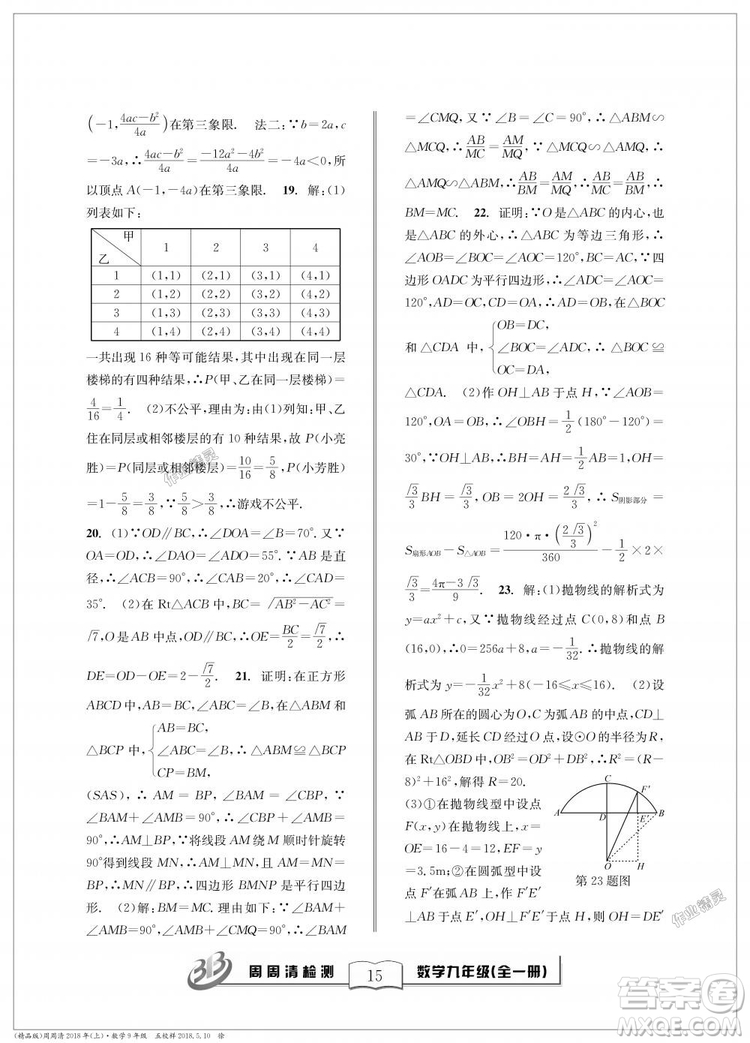 (-1, (4ac-b²)/4a)在第三象限. 法二:∵b=2a,c
=-3a,∴(4ac-b²)/4a=(-12a²-4b²)/4a=-4a<0,所
以顶点A(-1,-4a)在第三象限. 19. 解:(1)
列表如下:
甲 乙 1 2 3 4
1 (1,1) (2,1) (3,1) (4,1)
2 (1,2) (2,2) (3,2) (4,2)
3 (1,3) (2,3) (3,3) (4,3)
4 (1,4) (2,4) (3,4) (4,4)
一共出现16种等可能结果,其中出现在同一层
楼梯的有四种结果,∴P(甲、乙在同一层楼梯)=
4/16=1/4. (2)不公平,理由为:由(1)列知:甲、乙
住在同层或相邻楼层的有10种结果,故P(小亮
胜)=P(同层或相邻楼层)=10/16=5/8,P(小芳胜)
=1-5/8=3/8,∵5/8>3/8,∴游戏不公平.
20. (1)∵OD∥BC,∴∠DOA=∠B=70°. 又∵
OA=OD,∴∠DAO=∠ADO=55°. ∵AB是直
径,∴∠ACB=90°,∴∠CAB=20°,∴∠CAD=
35°. (2)在Rt△ACB中,BC=√(AB²-AC²)=
√7,O是AB中点,OD∥BC,∴OE=BC/2=√7/2,∴
DE=OD-OE=2-√7/2. 21. 证明:在正方形
ABCD中,AB=BC,∠ABC=∠B,在△ABM和
△BCP中,{AB=BC, ∠ABC=∠B, BM=CP, ∴△ABM≌△BCP
(SAS),∴AM=BP,∠BAM=∠CBP,∵
∠BAM+∠AMB=90°,∴∠CBP+∠AMB=
90°,∴AM⊥BP,∵将线段AM绕M顺时针旋转
90°得到线段MN,∴AM⊥MN,且AM=MN,∴
MN∥BP,∴四边形BMNP是平行四边
形. (2)解:BM=MC. 理由如下:∵∠BAM+
∠AMB=90°,∠AMB+∠CMQ=90°,∴∠BAM
=∠CMQ,又∵∠B=∠C=90°,∴△ABM∽
△MCQ,∴AB/MC=AM/MQ,∵△MCQ∽△AMQ,∴
△AMQ∽△ABM,∴AB/BM=AM/MQ,∴AB/MC=AB/BM,∴
BM=MC. 22. 证明:∵O是△ABC的内心,也
是△ABC的外心,∴△ABC为等边三角形,∴
∠AOB=∠BOC=∠AOC=120°,BC=AC,∵四
边形OADC为平行四边形,∴∠ADC=∠AOC=
120°,AD=OC,CD=OA,∴AD=OB,在△BOC
和△CDA中,{OB=DC, ∠BOC=∠ADC, OC=DA, ∴△BOC≌
△CDA. (2)作OH⊥AB于点H,∵∠AOB=
120°,OA=OB,∴∠OBH=1/2(180°-120°)=
30°,∵OH⊥AB,∴BH=AH=1/2AB=1,OH=
√3/3BH=√3/3,OB=2OH=2√3/3,∴S阴影部分=
S扇形AOB-S△AOB=120·π·(2√3/3)²/360-1/2×2×
√3/3=(4π-3√3)/9. 23. 解:(1)抛物线的解析式为
y=ax²+c,∵抛物线经过点C(0,8)和点B
(16,0),∴0=256a+8,a=-1/32.∴抛物线的解
析式为y=-1/32x²+8(-16≤x≤16). (2)设
弧AB所在的圆心为O,C为弧AB的中点,CD⊥
AB于D,延长CD经过O点,设⊙O的半径为R,
在Rt△OBD中,OB²=OD²+DB²,∴R²=(R-
8)²+16²,解得R=20.
(3)①在抛物线型中设点
F(x,y)在抛物线上,x=
OE=16-4=12,EF=y
=3.5m;②在圆弧型中设
点F′在弧AB上,作F′E′
⊥AB于E′,OH⊥F′E′于H,则OH=DE′
C F′ A D B O H
第23题图
周周清检测 15 数学九年级(全一册)
(精品版)周周清2018年(上)·数学9年级 五校样2018.5.10 徐
作业精灵
作业精灵
答案圈
MXQE.COM